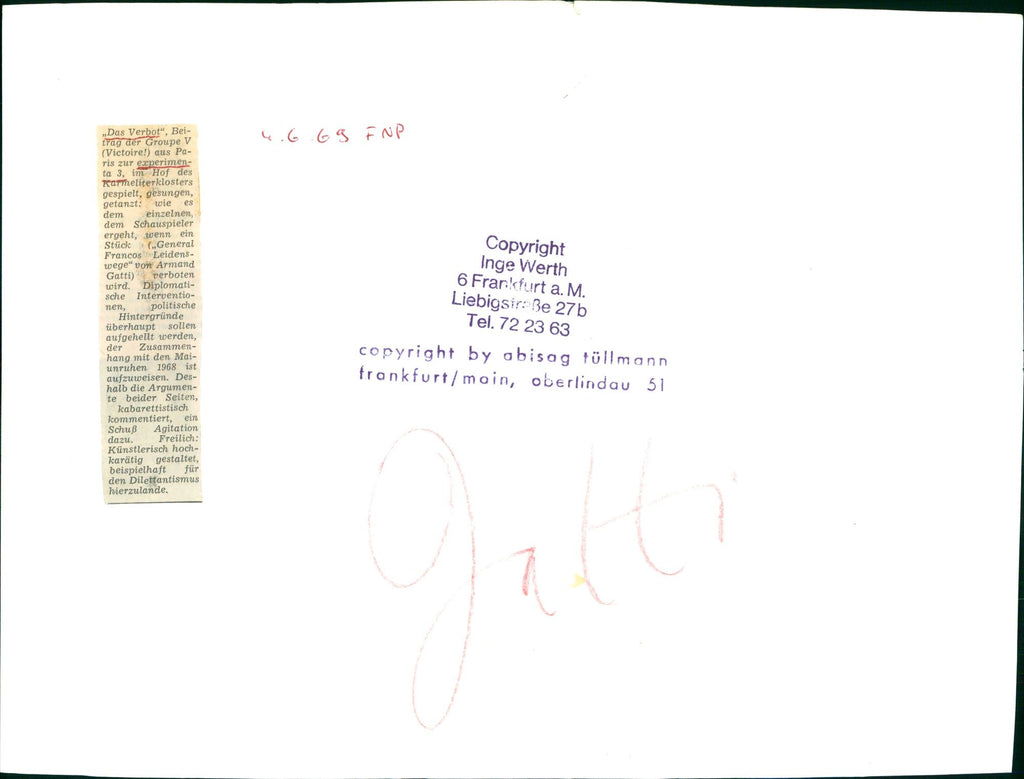 „Das Verbot", Bei-
trag der Groupe V
(Victoire!) aus Pa-
ris zur experimen-
ta 3, im Hof des
Karmeliterklosters
gespielt, gesungen,
getanzt: wie es
dem einzelnen,
dem Schauspieler
ergeht, wenn ein
Stück („General
Francos Leidens-
wege" von Armand
Gatti) verboten
wird. Diplomati-
sche Interventio-
nen, politische
Hintergründe
überhaupt sollen
aufgehellt werden,
der Zusammen-
hang mit den Mai-
unruhen 1968 ist
aufzuweisen. Des-
halb die Argumen-
te beider Seiten,
kabarettistisch
kommentiert, ein
Schuß Agitation
dazu. Freilich:
Künstlerisch hoch-
karätig gestaltet,
beispielhaft für
den Dilettantismus
hierzulande.
4.6.69 FNP
Copyright
Inge Werth
6 Frankfurt a. M.
Liebigstraße 27b
Tel. 72 23 63
copyright by abisag tüllmann
frankfurt/main, oberlindau 51
Gatti